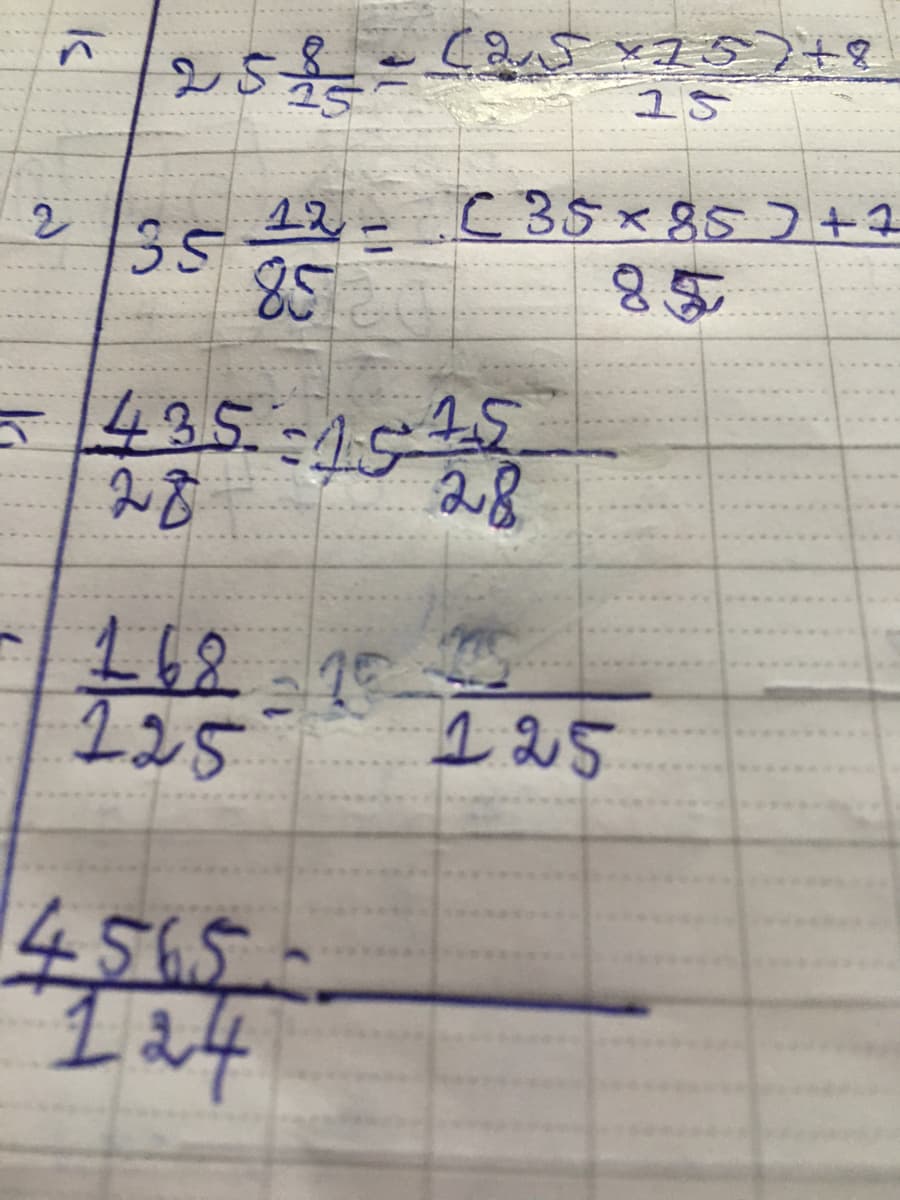 ก 25 8/15 = (25 × 15) + 8 / 15
2 35 12/85 = (35 × 85) + 1 / 85
435/28 = 15 15/28
168/125 = 15 /125
4565/124 =